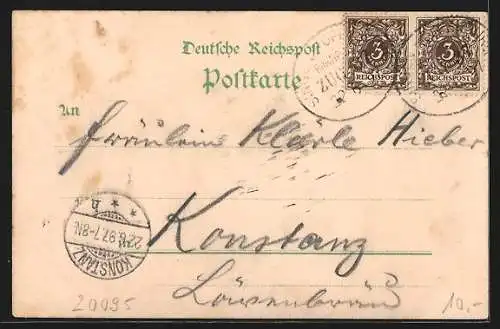 Deutsche Reichspost
Postkarte
3
REICHSPOST
3
REICHSPOST
ZUG
An
Fräulein Klärle Hieber
Konstanz
Löwenbräu
KONSTANZ
22.6.97.7-8N.
* h *
20095
10.-